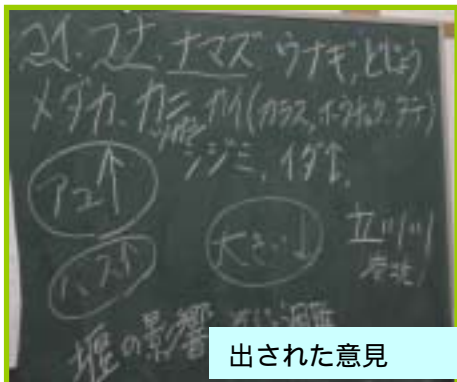 コイ.フナ.ナマズ ウナギ,どじょう
メダカ.カニ ガイ(カラス,
シジミ,イダ↑,
アユ↑
大きい↓
ハス↑
堰の影響
出された意見